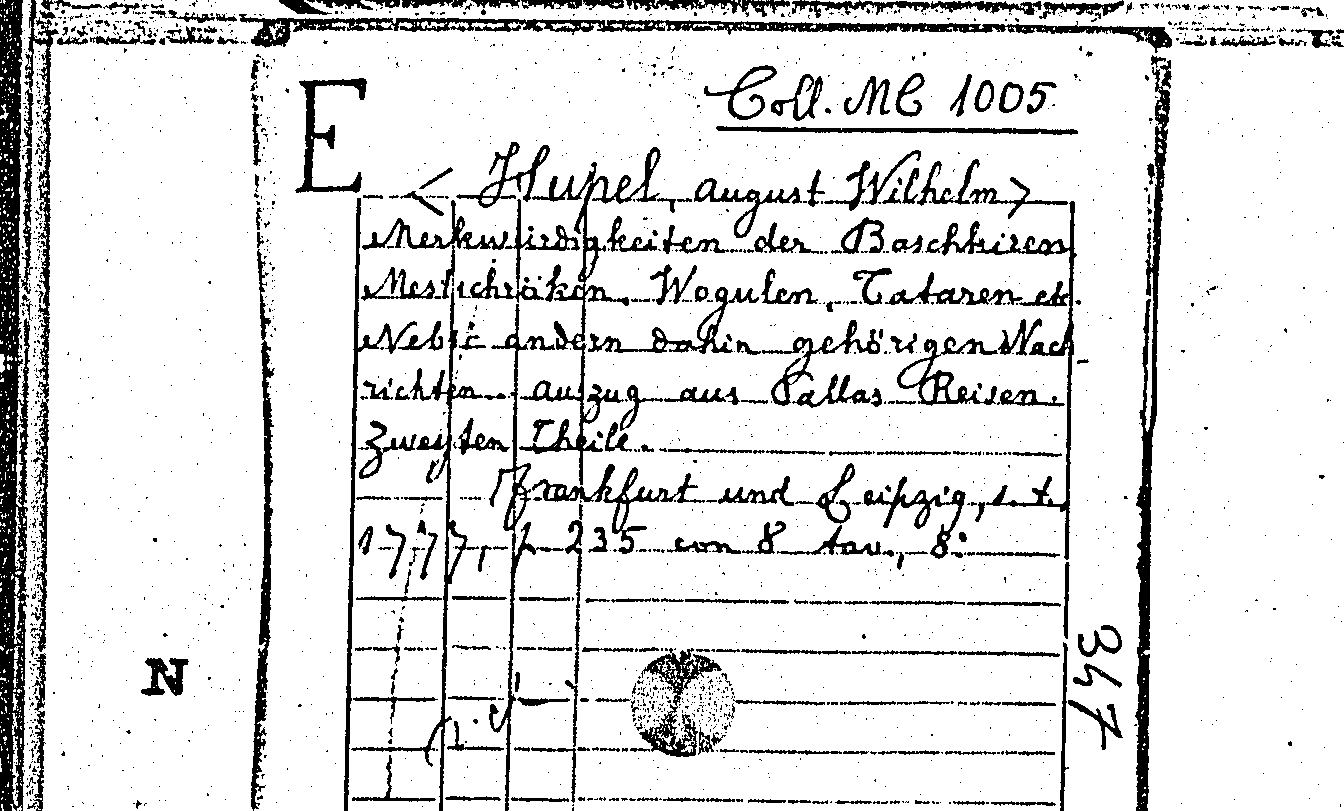 E
Coll. MC 1005
< Hupel, August Wilhelm >
Merkwürdigkeiten der Baschkiren,
Mestichräken, Wogulen, Tataren etc.
Nebst andern dahin gehörigen Nach
richten. Auszug aus Pallas Reisen.
Zweyten Theile.
Frankfurt und Leipzig, s.t.,
1777, p. 235 con 8 tav., 8°.
347
N